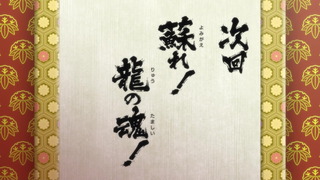 次回
蘇れ!
龍の魂!
よみがえ
りゅう
たましい